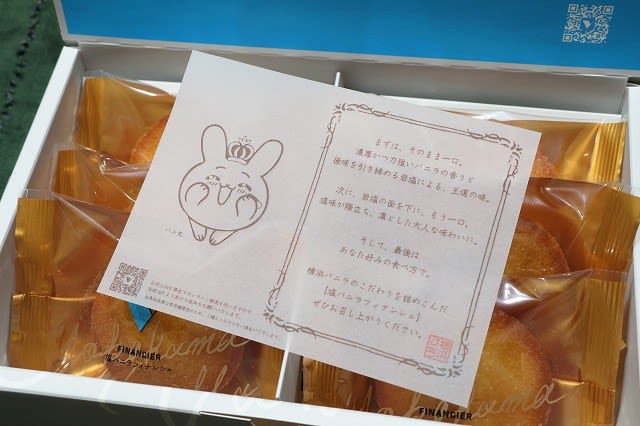 まずは、そのまま一口。
濃厚かつ力強いバニラの香りと
後味を引き締める岩塩による、王道の味。
次に、岩塩の面を下に、もう一口。
塩味が際立ち、凛とした大人な味わいに。
そして、最後は
あなた好みの食べ方で。
横浜バニラのこだわりを詰めこんだ
【塩バニラフィナンシェ】
ぜひお召し上がりください。
バニ太
FINANCIER
塩バニラフィナンシェ
Yokohama
Vanilla
FINANCIER
Yokohama